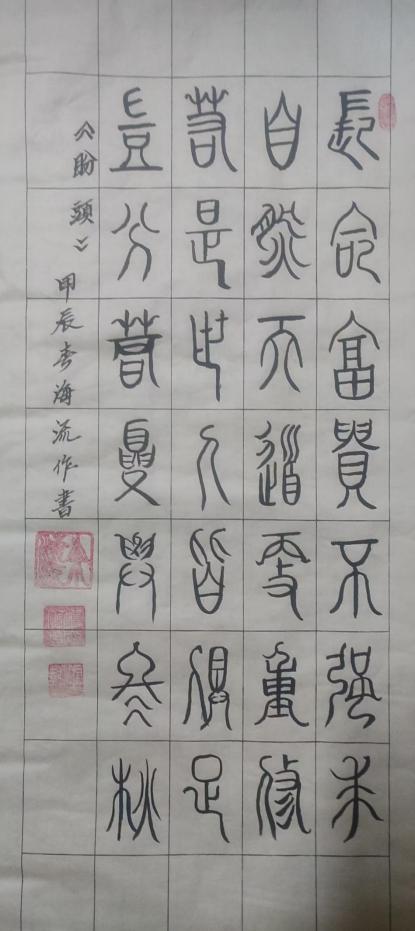 長命富貴不強求
自然天道更重修
若是世人皆得足
豈分春夏與冬秋
《盼頭》甲辰李海流作書